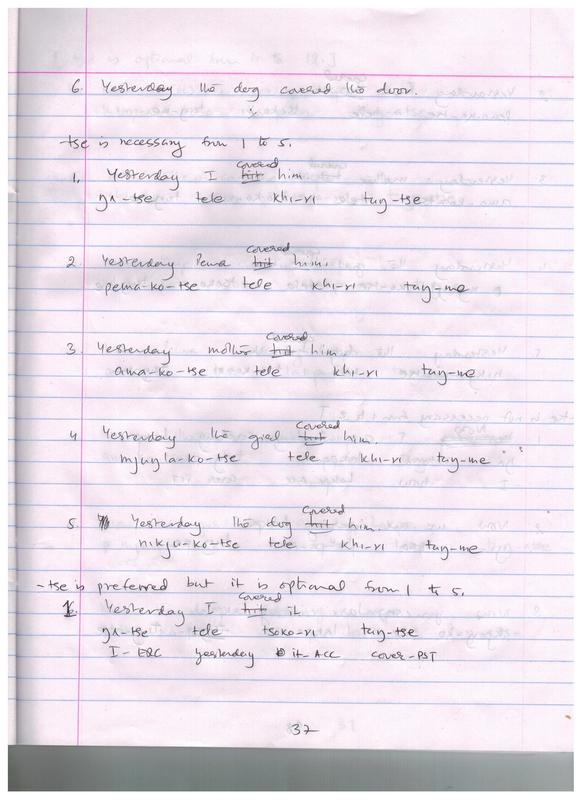 6. Yesterday the dog covered the door.
tse is necessary from 1 to 5.
covered
1. Yesterday I hit him
ŋʌ-tse tele khi-ri tuŋ-tse
covered
2. Yesterday Pema hit him.
pema-ko-tse tele khi-ri tuŋ-me
covered
3. Yesterday mother hit him
ama-ko-tse tele khi-ri tuŋ-me
covered
4. Yesterday the girl hit him
mjuŋla-ko-tse tele khi-ri tuŋ-me
covered
5. Yesterday the dog hit him
nikju-ko-tse tele khi-ri tuŋ-me
-tse is preferred but it is optional from 1 to 5.
covered
1. Yesterday I hit it
ŋʌ-tse tele tsoko-ri tuŋ-tse
I-ERC yesterday it-ACC cover-PST
37